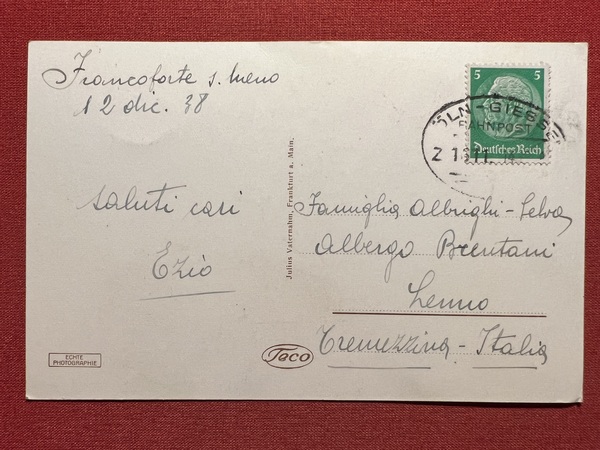 Francoforte s. Meno
12 dic. 38
saluti cari
Ezio
ECHTE
PHOTOGRAPHIE
Julius Vaternahm, Frankfurt a. Main.
Taco
5 5
Deutsches Reich
ÖLN-GIESSE
BAHNPOST
Famiglia Albrighi-Selva
Albergo Brentani
Lenno
Tremezzina - Italia